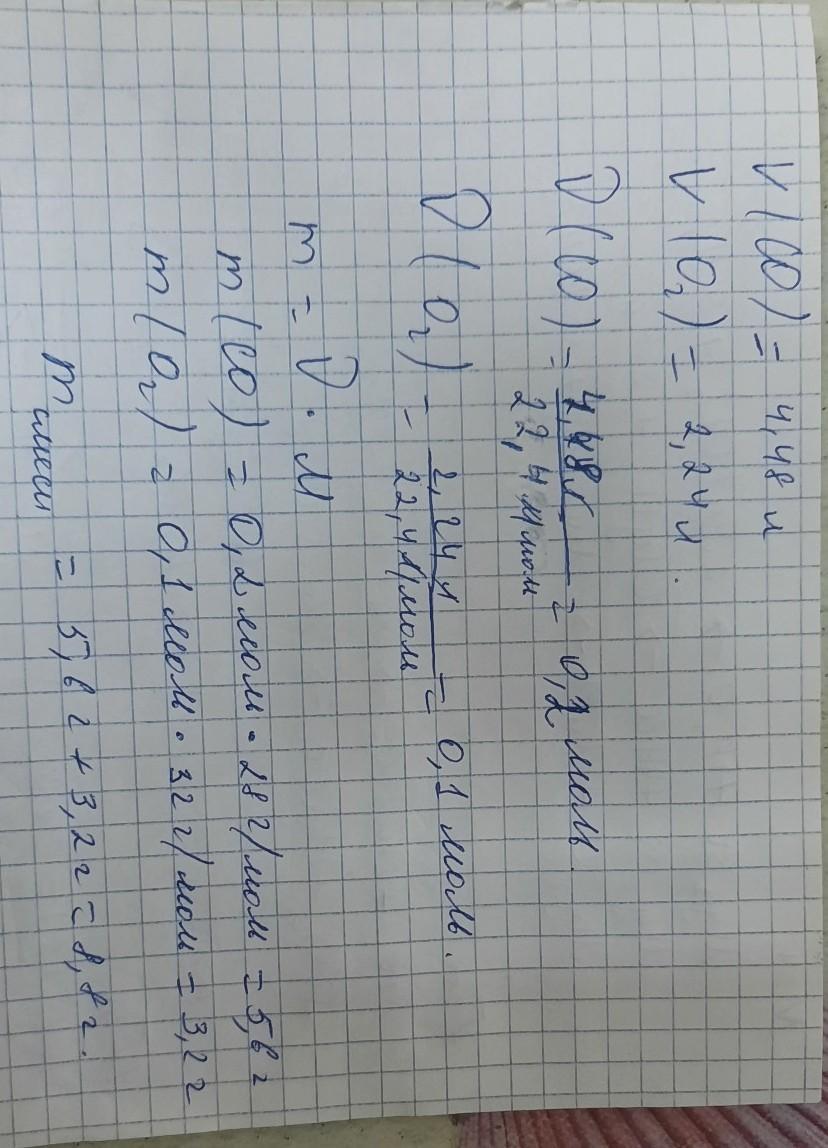 V(CO) = 4,48 л
V(O₂) = 2,24 л.
ν(CO) = 4,48л / 22,4 л/моль = 0,2 моль.
ν(O₂) = 2,24 л / 22,4 л/моль = 0,1 моль.
m = ν · M
m(CO) = 0,2 моль · 28 г/моль = 5,6 г
m(O₂) = 0,1 моль · 32 г/моль = 3,2 г
m смеси = 5,6 г + 3,2 г = 8,8 г.